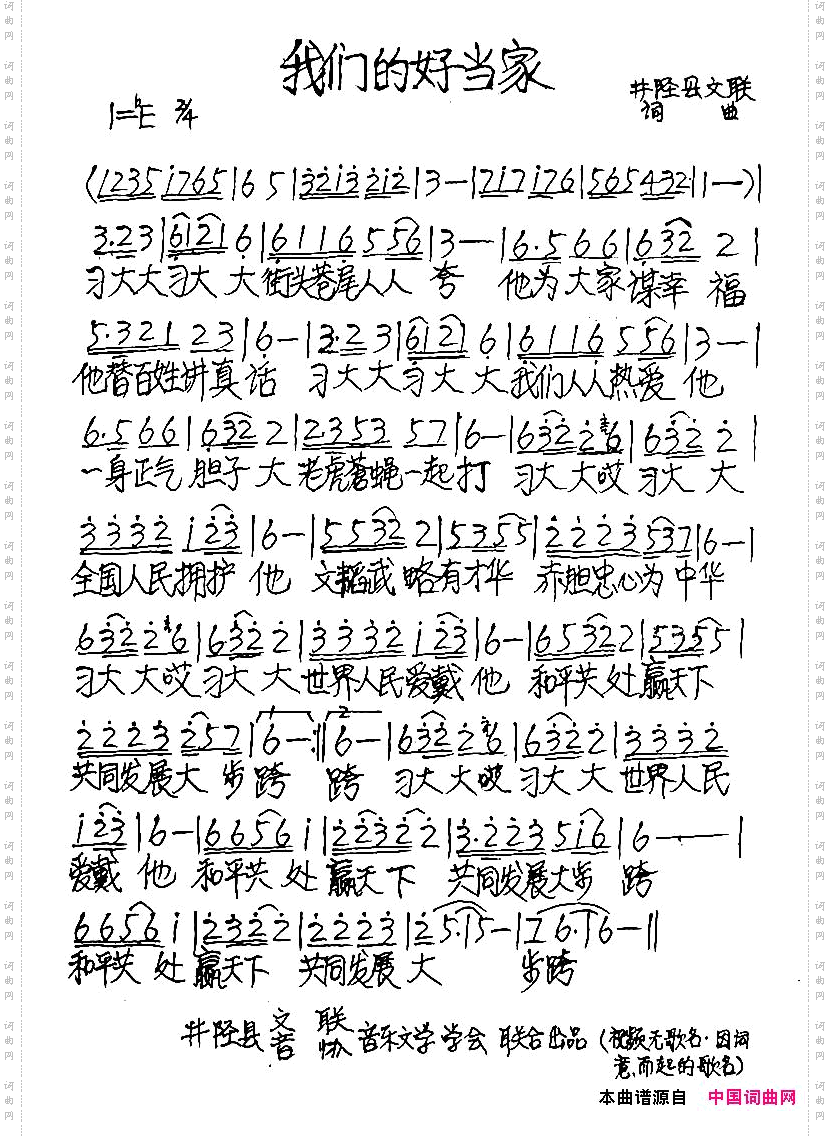 我们的好当家
1=♭E 2/4
井陉县文联
词 曲
(1235 1765|6 5|3213 212|3—|717 176|565 432|1—)|
3·23|6121 6|6116 556|3—|6·5 66|632 2|
习大大习大 大街头巷尾人人 夸 他为大家谋幸 福
5·321 23|6—|3·2 3|6121 6|6116 556|3—|
他替百姓讲真话 习大大习大 大我们人人热爱 他
6·566|632 2|2·353 57|6—|632 26|632 2|
一身正气 胆子 大 老虎苍蝇一起打 习大 大哎 习大 大
3332 1 23|6—|5532 2|5355|2223 537|6—|
全国人民拥护 他 文韬武 略有才华 赤胆忠心为 中华
632 26|632 2|3332 1 23|6—|6532 2|5355|
习大 大哎 习大 大 世界人民爱戴 他 和平共 处赢天下
2223 257|6—:‖6—|632 26|632 2|3332
共同发展大 步跨 跨 习大 大哎 习大 大 世界人民
1 23|6—|6656 1|2232 2|3·223 516|6——|
爱戴 他 和平共 处 赢天下 共同发展大步 跨
6656 1|232 2|2223|2 5·15—|76·16—‖
和平共 处 赢天下 共同发展 大 步跨
井陉县文联 音协 音乐文学学会 联合出品 (视频无歌名·因词
意,而起的歌名)
本曲谱源自 中国词曲网
词曲网